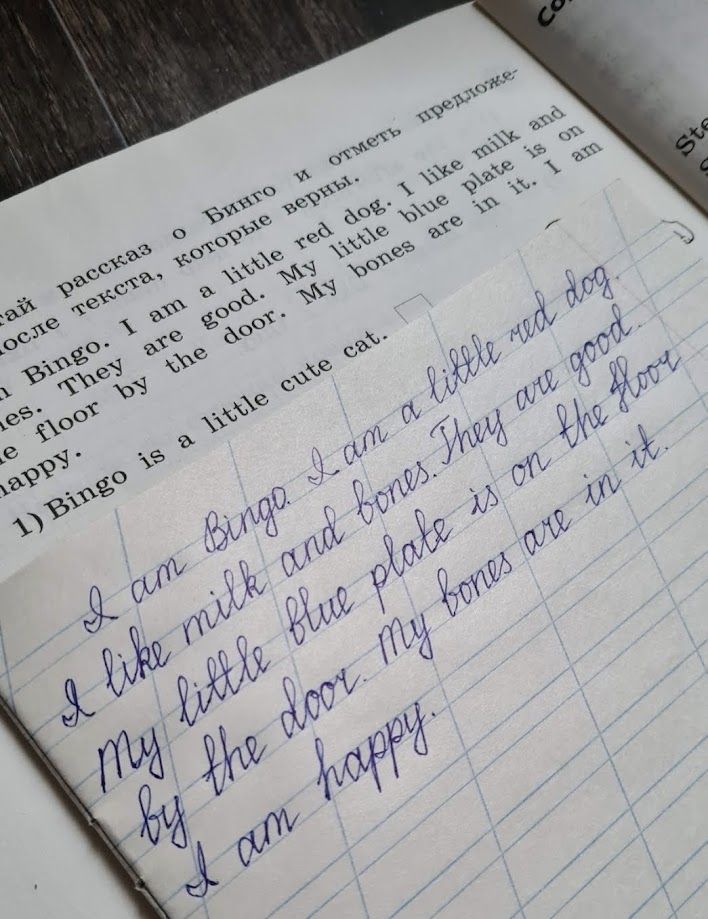 рассказ о Бинго и отметь предложе-
после текста, которые верны.
Bingo. I am a little red dog. I like milk and
They are good. My little blue plate is on
floor by the door. My bones are in it. I am
happy.
1) Bingo is a little cute cat.
I am Bingo. I am a little red dog.
I like milk and bones. They are good.
My little blue plate is on the floor
by the door. My bones are in it.
I am happy.